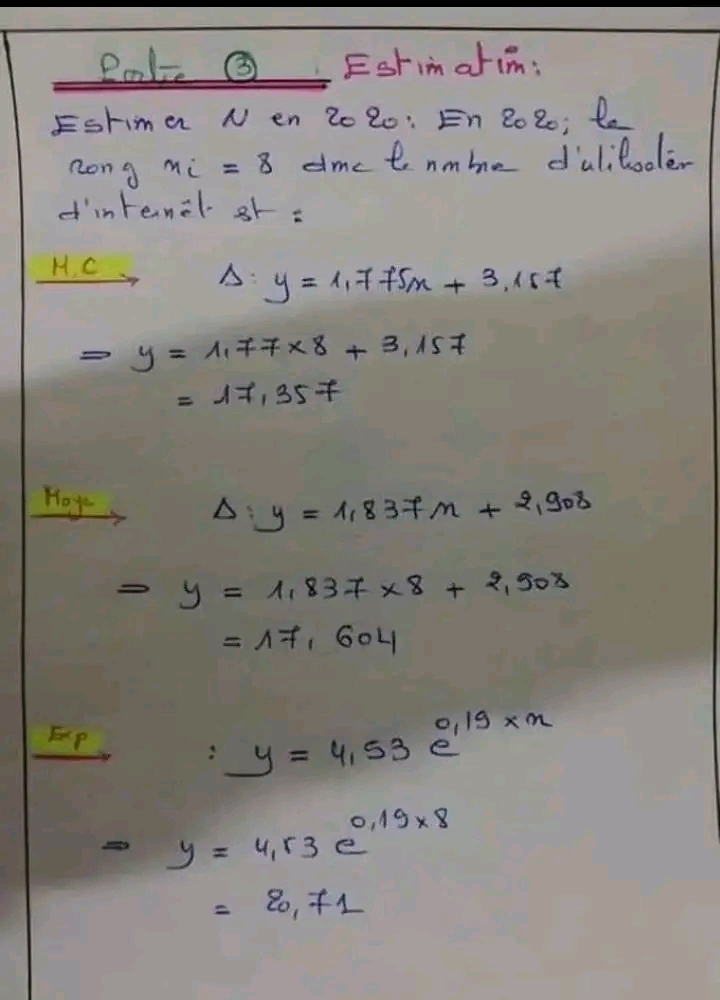 Partie ③ : Estimation :
Estimer N en 2020 : En 2020 ; le
rang xi = 8 donc le nombre d'utilisatér
d'internèt est :
M.C
Δ : y = 1,775x + 3,157
⇒ y = 1,77×8 + 3,157
= 17,357
Moye
Δ : y = 1,837x + 2,908
⇒ y = 1,837×8 + 2,908
= 17,604
Exp
: y = 4,53 e^0,19×x
⇒ y = 4,53 e^0,19×8
= 20,71